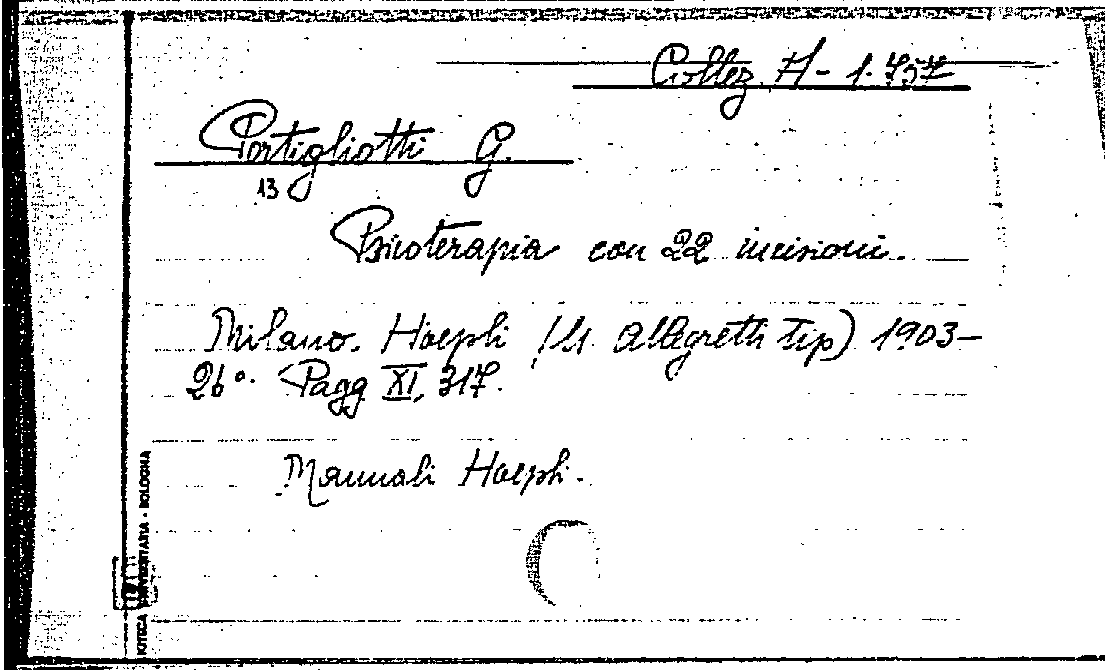 Collez. A - 1.757
Portigliotti G.
13
Psicoterapia con 22 incisioni.
Milano. Hoepli (U. Allegretti tip) 1903-
26°. Pagg XI, 317.
Manuali Hoepli.
IOTECA UNIVERSITARIA - BOLOGNA